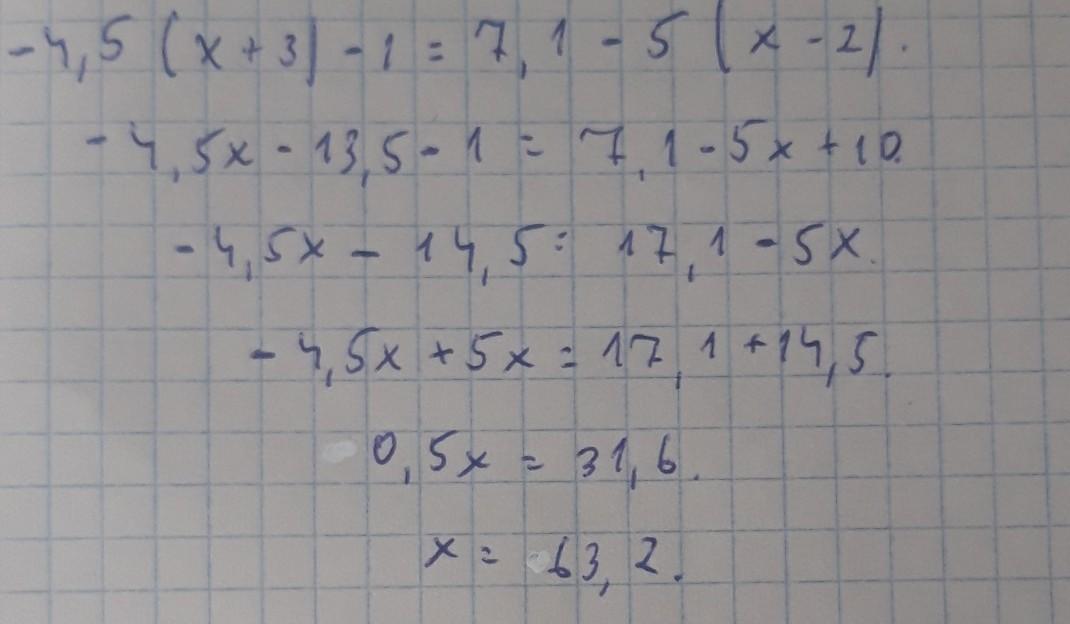 -4,5 (x+3) - 1 = 7,1 - 5 (x-2).
-4,5x - 13,5 - 1 = 7,1 - 5x + 10.
-4,5x - 14,5 = 17,1 - 5x.
-4,5x + 5x = 17,1 + 14,5.
0,5x = 31,6.
x = 63,2.